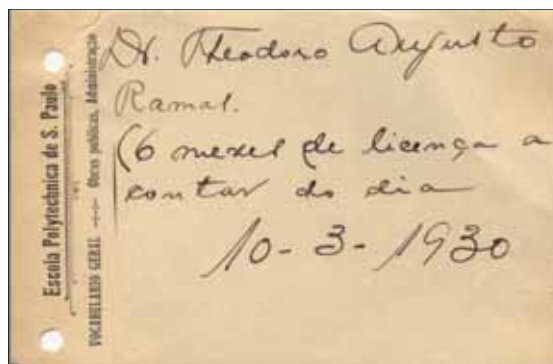 Escola Polytechnica de S. Paulo
VOCABULARIO GERAL — Obras publicas, Administração
Dr. Theodoro Augusto
Ramos.
(6 mezes de licença a
contar do dia
10-3-1930